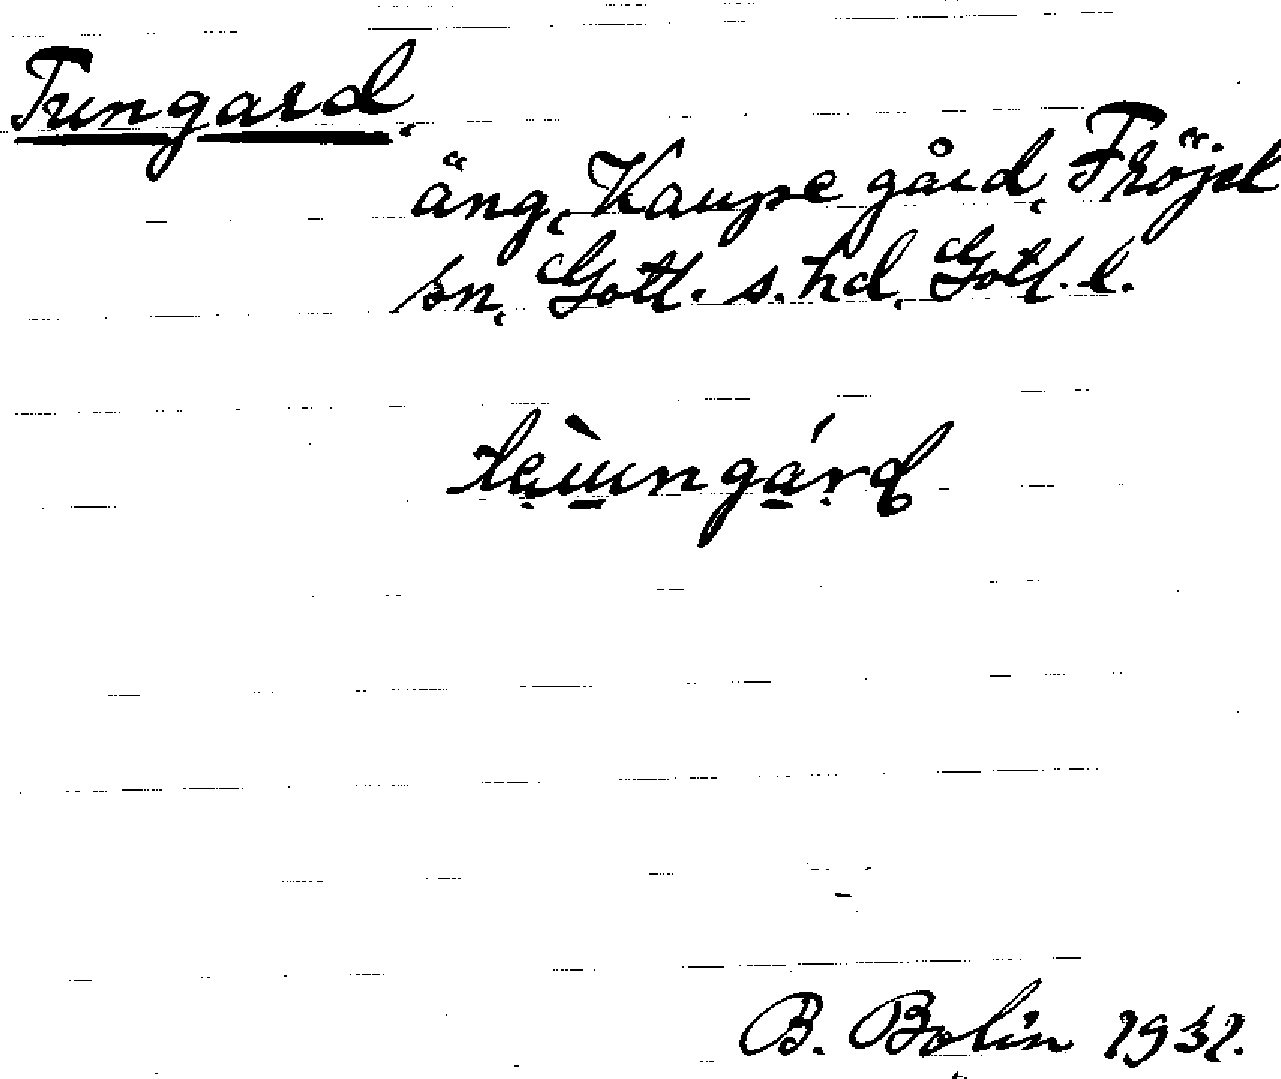 Tungard,
äng, Kaupe gård, Fröjel
sn, Gotl. s. hd, Gotl. l.
B. Bolin 1931.